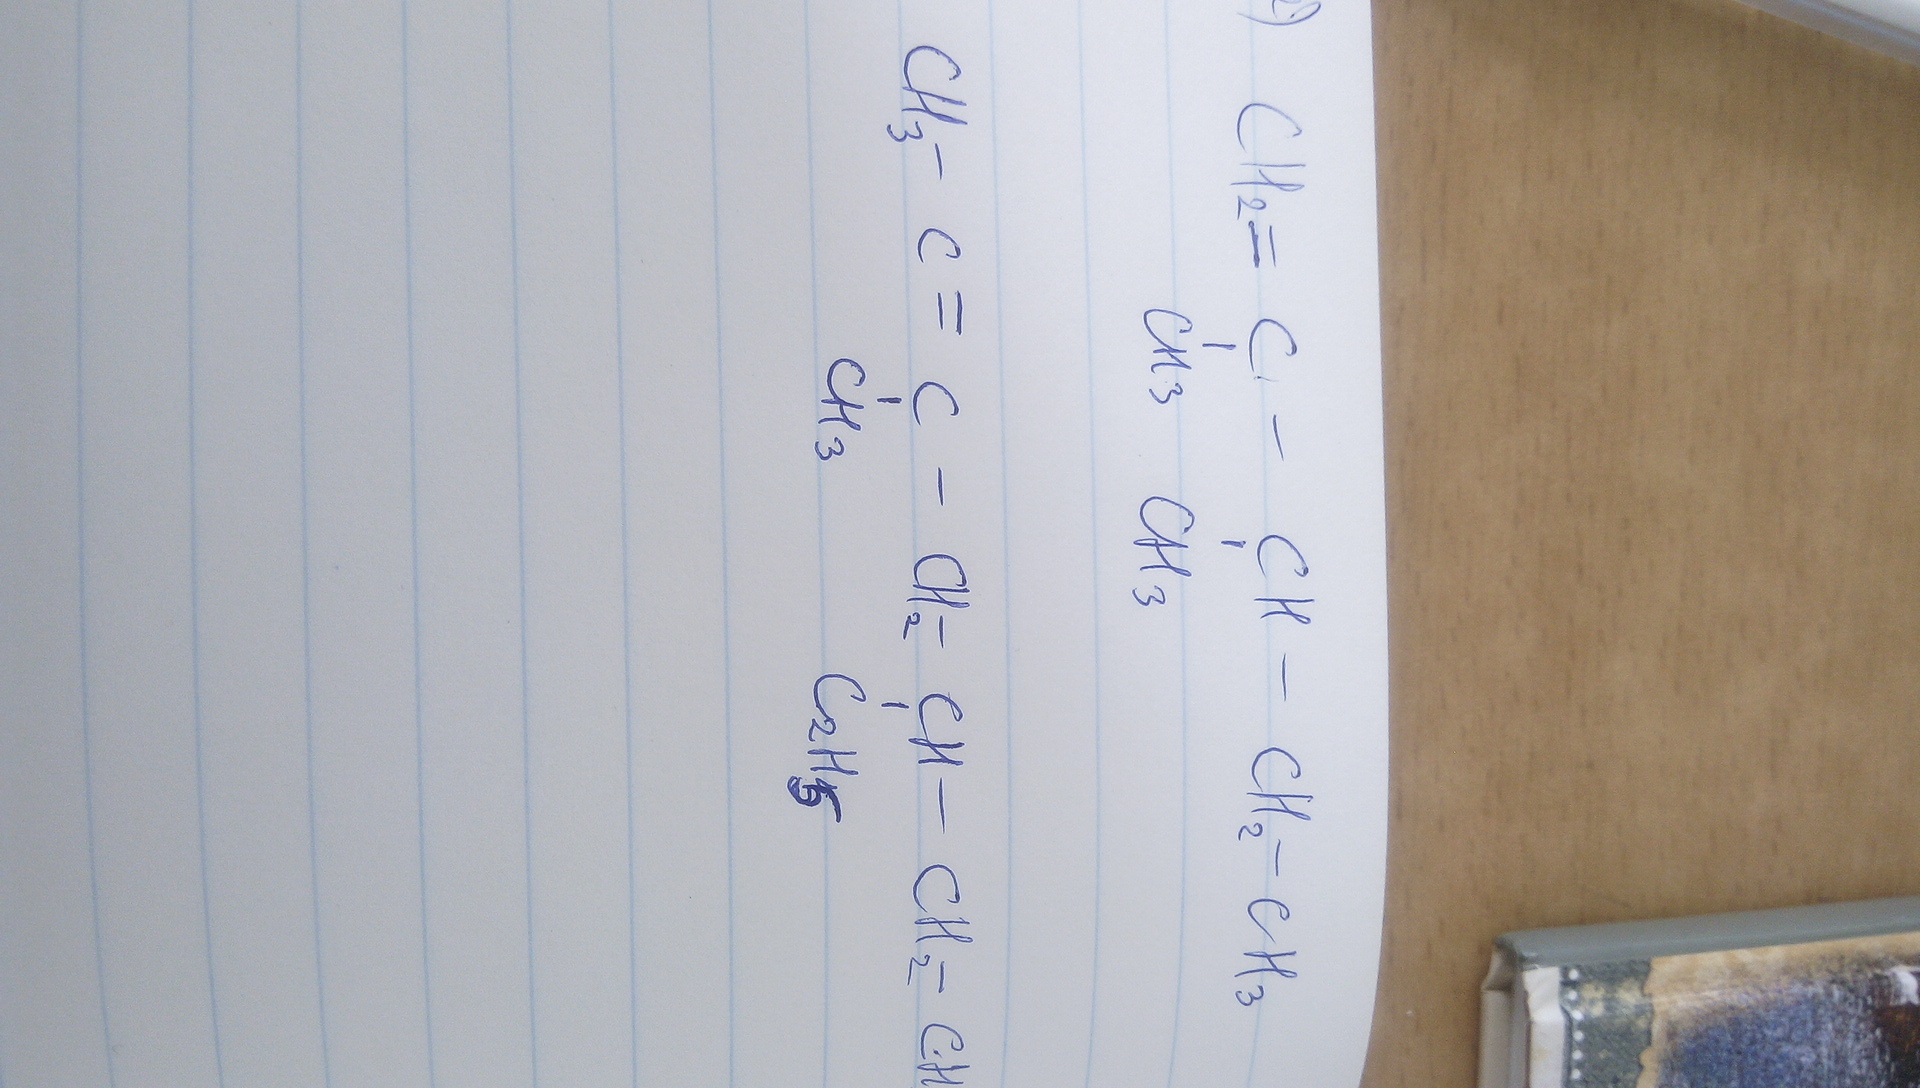 2) CH₂ = C - CH - CH₂ - CH₃
CH₃ CH₃
CH₃ - C = C - CH₂ - CH - CH₂ - CH
CH₃ C₂H₅